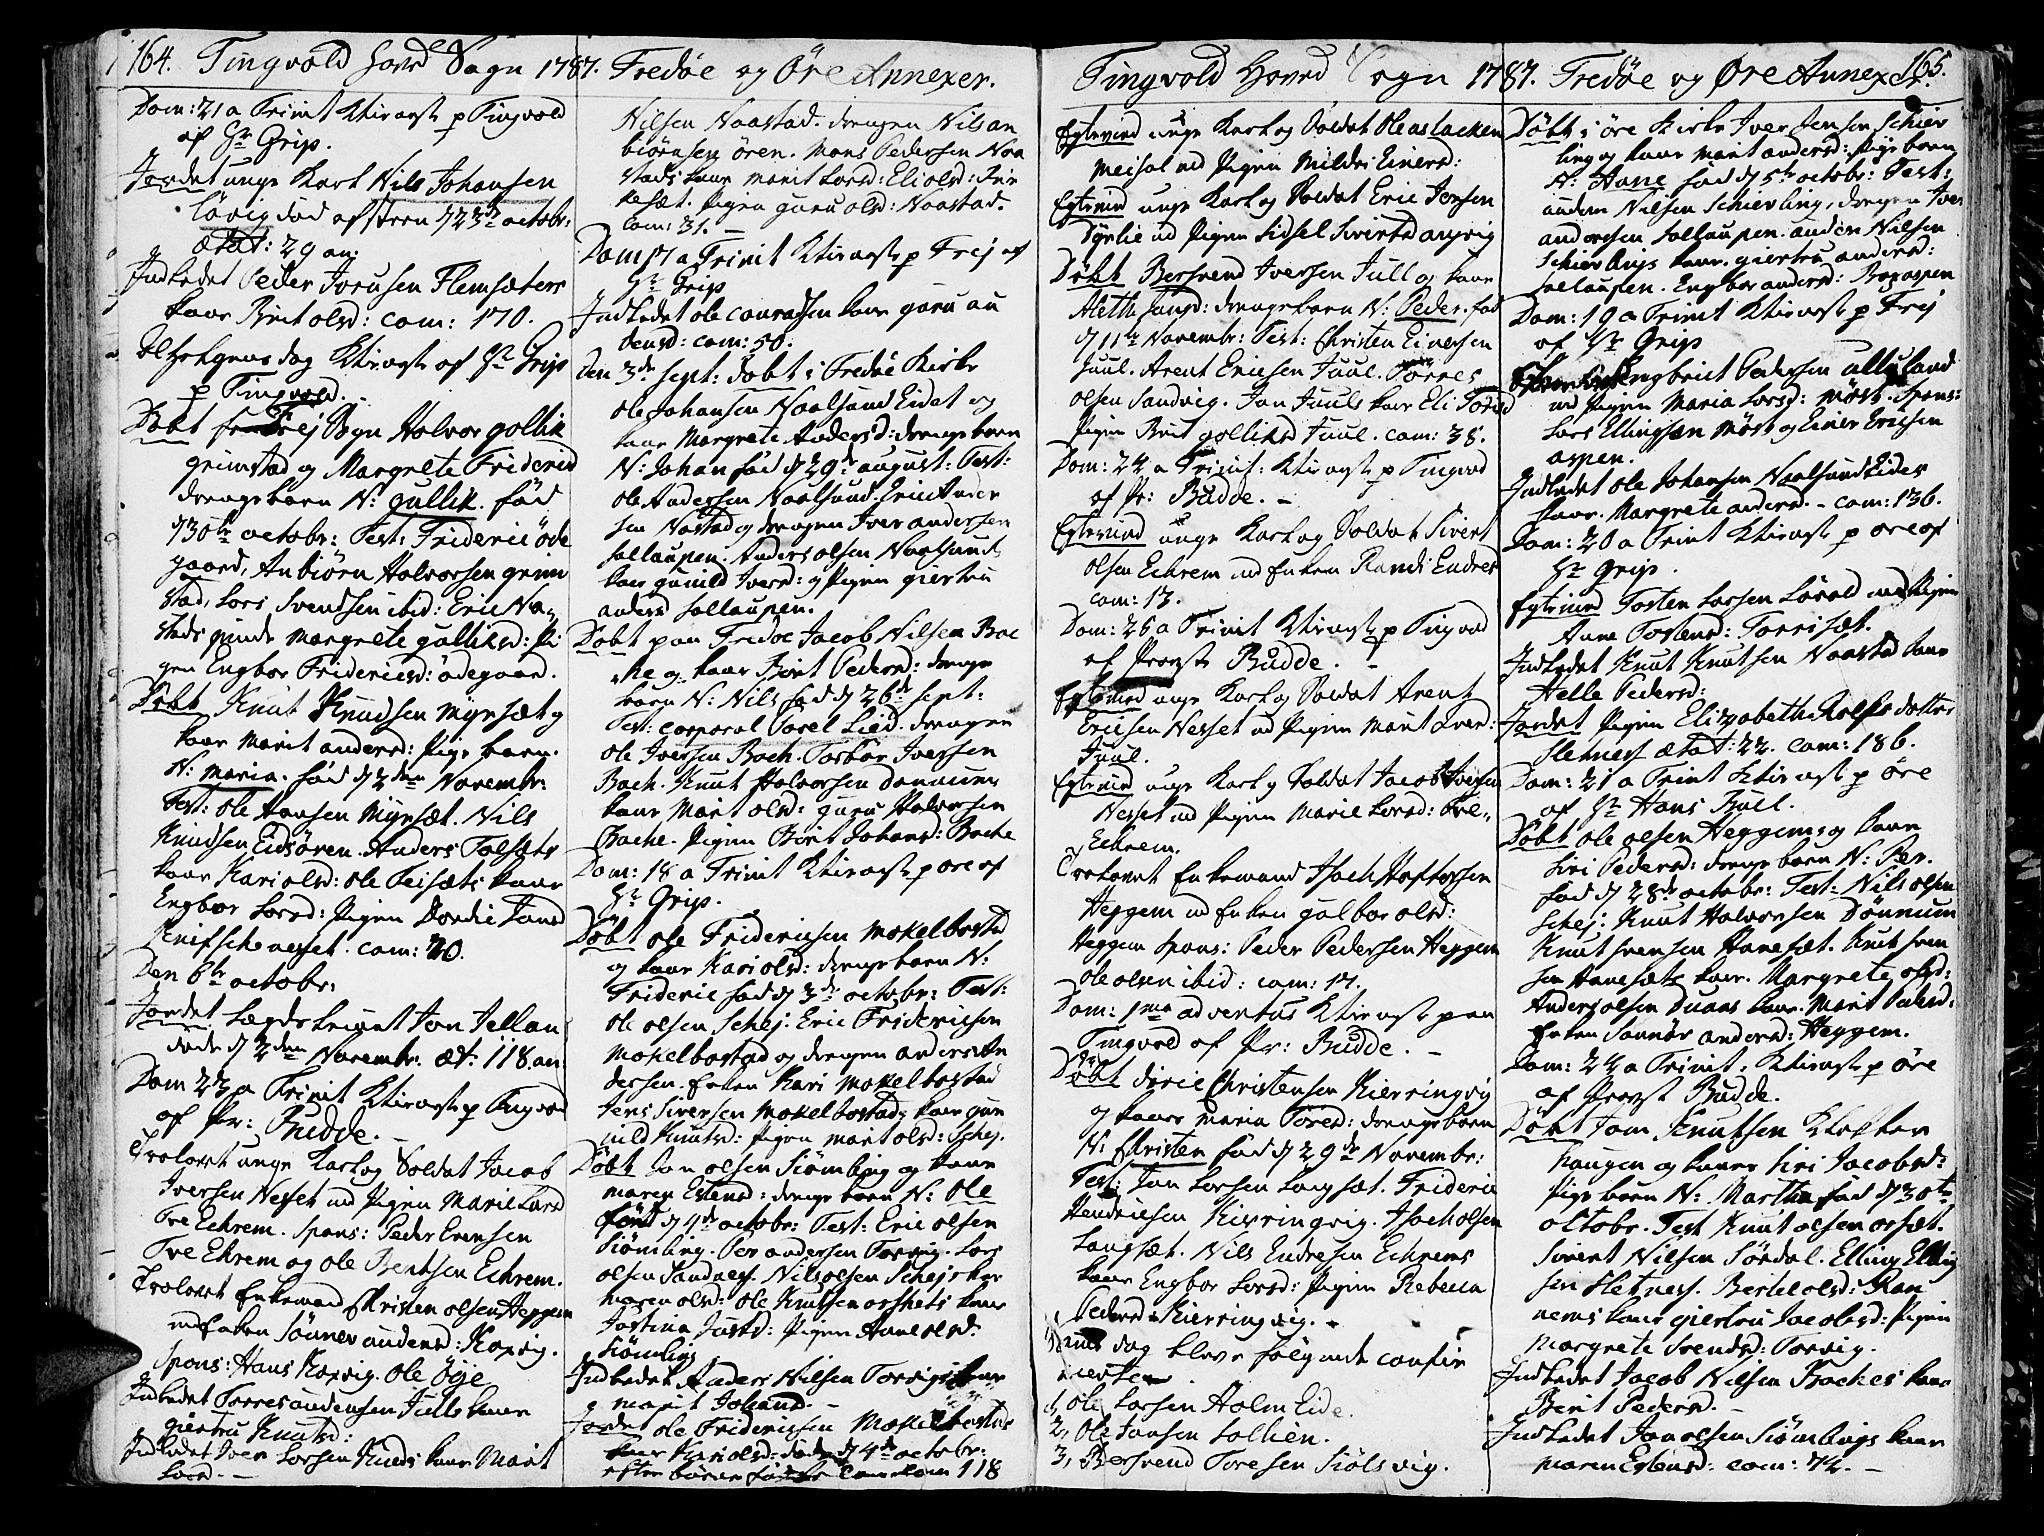 164. Tingvold Hoved Sogn 1787. Fredøe og Öre Annexer.
Dom: 21 a Trinit Ktienest p Tingvold
af Hr Grip.
Jordet unge Karl Nils Johansen
Lövig død af d 23de octobr:
Ætat: 29 an:
Indledet Peder Iversen Flemsæters
kaane Brit olsd: com: 170.
Alhelgens dag Ktienest af Hr Grip
p Tingvold.
Döbt fra Frej Sogn Halvor gollik
grimstad og Margrete Friderics
drengebarn N: gullik. föd
d 30te octobr: Test: Frideric öde
gaard, Anbiörn Halvorsen grim
stad, Lars Svendsen ibid: Eric Na
stads qvinde Margrete golliksd: Pi
gen Engbor Fridericsd: ödegaard.
Döbt Knut Knudsen Myrsæt og
kaane Marit andersd: Pige barn.
N: Maria. föd d 2den Novembr:
Test: ole Hansen Myrsæt. Nils
Knudsen Eidsören. Anders Talsæts
kaane Kari olsd: ole Teisæts kaane
Engbor Larsd: Pigen Dordie Jansd
Knifschenesset. com: 20.
Den 6te octobr:
Jordet Lægdslemet Jon Jellan
døde d 2den Novembr. æt: 118. an:
Dom 22 a Trinit Ktienest p Tingvold
af Pr: Budde.
Trolovet unge Karl og Soldat Jacob
Iversen Nesset med Pigen Marie Larsd
Tre Echrem. Spons: Peder Evensen
Tre Ehrem og ole Bentsen Echrem.
Trolovet Enkemand Christen olsen Heggem
med Enken Sönnev andersd: Korsvig.
Spons: Hans Korsvig. Ole Öÿe
Indledet Torres andersen Juuls kaane
giertru Knutsd:
Indledet Iver Larsen kaane Marit
Larsd. -
Nilsen Naastad. drengen Nils an
biörnsen ören. Mons Pedersen Naa
stads kaane Marit Larsd: Eli olsd:
Pigen guru olsd: Naastad.
Com: 31. -
Dom 17 a Trinit Ktienest p Frej af
Hr Grip
Indledet ole conradsen kaane guru an
dersd: com: 50.
Den 3de Sept: döbt i Fredöe Kirke
ole Johansen Naalsund Eidet og
kaane Margrete Andersd: drengebarn
N: Johan föd d 29de august: Test:
ole Andersen Naalsund. Eric Ander
sen Nastad og drengen Iver andersen
Sollaupen. Anders olsen Naalsund
kaane gunild Iversd: og Pigen giertru
andersd Sollaupen.
Döbt paa Fredöe Jacob Nilsen Bac
he og kaane Birit Pedersd: drenge
barn N: Nils föd d 26de Sept:
Test: corporal Povel Lied. drengen
ole Iversen Bach. Torbör Iversen
Bach. Knut Halvorsen Donnums
kaane Marit olsd: guru Halvorsen
Bache. Pigen Birit Johansd: Bache
Dom: 18 a Trinit Ktienest p ore af
Hr Grip.
Döbt ole Fridericsen Mokelbostad
og kaane Kari olsd: drengebarn N:
Frideric föd d 3de octobr: Test:
ole olsen Schej. Eric Fridericsen
Mokelbostad og drengen anders An
dersen. Enken Kari Mokelbostad
Jens Siversen Mokelbostads kaane gun
nild Knutsd: Pigen Marit olsd: Schej.
Döbt Jan olsen Siömling og kaane
Maren Estensd: drengebarn N: Ole
født d 4de octobr: Test: Eric olsen
Siömling. Per andersen Torvig. Lars
olsen Sandnes. Nils olsen Schejs kaane
Maren olsd: ole Knutsen orsæts kaane
Jostina Justsd: Pigen Anne olsd:
Siömling
Indledet Anders Nilsen Torvigs kaane
Marit Johansd. -
Jordet ole Fridericsen Mokelbostads
kaane Kari olsd: døde d 4de octobr:
efter barne födsel com 118
Tingvold Hoved Sogn 1787. Fredøe og Øre Annexer. 165.
Egteviied unge Karl og Soldat Ole aslacksen
Meisal med Pigen Mildri Einersd:
Egteviied unge Karl og Soldat Eric Jensen
Dyrlie med Pigen Sidsel Sivertsd angvig
Döbt Bersvend Iversen Juul og kaane
Alethe Jansd: drengebarn N: Peder. föd
d 11te Novembr: Test: Christen Einersen
Juul. Arent Ericsen Juul. Torres
olsen Sandvig. Jan Juuls kaane Eli Torisd
Pigen Brit golliksd Juul. com: 38.
Dom: 24 a Trinit: Ktienest p Tingvold
af Pr: Budde. -
Egteviied unge Karl og Soldat Sivert
olsen Echrem med Enken Randi Endresd
com: 13.
Dom: 26 a Trinit Ktienest p Tingvold
af Provst Budde. -
Egteviied unge Karl og Soldat Arent
Ericsen Nesset med Pigen Marit Iversd:
Juul.
Egteviied unge Karl og Soldat Jacob Iversen
Nesset med Pigen Marie Larsd: Tre-
Echrem.
Trolovet Enkemand Isach Haftorsen
Heggem med Enken Golbor olsd:
Heggem Spons: Peder Pedersen Heggem
ole olsen ibid: com: 17.
Dom: 1ma adventus Ktienest paa
Tingvold af Pr: Budde. -
Döbt Christensen Kierringvig
og kaane Maria Toresd: drengebarn
N: Christen föd d 29de Novembr:
Test: Jan Larsen Langsæt. Frideric
Hendricsen Kierringvig. Isach olsen
Langsæt. Nils Endresen Echrems
kaane Engbor Larsd: Pigen Rebecca
Pedersd Kierringvig. -
Samme dag bleve følgende confir
merte
1, ole Larsen Holm Eide.
2, Ole Jansen Sollien.
3, Bersvend Toresen Siölsvig.
Döbt i öre Kirke Iver Jensen Schiev
ling og kaane Marit andersd: Pige barn
N: Anne föd d 5te octobr: Test:
anders Nilsen Schievling, drengen Iver
andersen Sollaupen. anders Nilsen
Schievlings kaane giertru andersd:
Sollaupen. Engbor andersd: Bogaspen
Dom: 19 a Trinit Ktienest p Frej
af Hr Grip
Engbrict Pedersen ulleland
med Pigen Maria Larsd: Möst. Spons:
Lars Ellingsen Möst og Einer Ericsen
aspen.
Indledet ole Johansen Naalsund Eides
kaane Margrete andersd. - com: 136.
Dom: 20 a Trinit Ktienest p ore af
Hr Grip.
Egteviied Tosten Larsen Lövold med Pigen
Anne Tostensd: Torrisæt.
Indledet Knut Knutsen Naastad kaane
Helle Pedersd:
Jordet Pigen Elizabeth Rolfs dotter
Sletnes ætat: 22. com: 186.
Dom: 21 a Trinit Ktienest p öre
af Hr Hans Buell.
Döbt ole olsen Heggem og kaane
Siri Pedersd: drenge barn N: Per.
föd d 28de octobr: Test: Nils olsen
Schej. Knut Halvorsen Dönnum
Knut Svensen Hanesæt. Knut Sven
sen Hanesæts kaane. Margrete olsd:
Anders olsen Duaas kaane. Marit Pedersd:
Enken Sönnöv andersd: Heggem.
Dom: 24 a Trinit. Ktienest p öre
af Provst Budde.
Döbt Jan Knutsen Klocker
haugen og kaane Siri Jacobsd:
Pige barn N: Martha föd d 30te
octobr. Test Knut olsen orsæt.
Sivert Nilsen Sördal. Elling Elling
sen Sletnes. Bertel olsd: Ran
nems kaane giertru Jacobsd: Pigen
Margrete Svendsd: Torvig.
Indledet Jacob Nilsen Baches kaane
Birit Pedersd. -
Indledet Jan olsen Siömlings kaane
Maren Estensd: com: 74. -